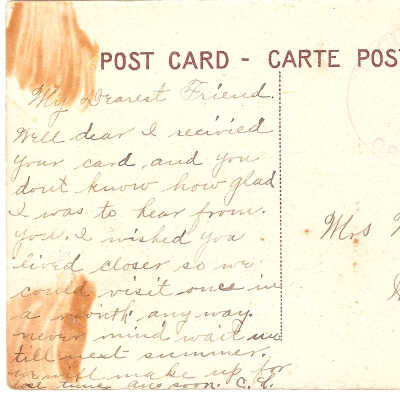 POST CARD - CARTE POS
My Dearest Friend.
Well dear I recivied
your card and you
dont know how glad
I was to hear from.
you. I wished you
lived closer so we
could visit once in
a month any way.
never mind wait
till next summer.
we will make up for
lose time. soon. C.
Mrs